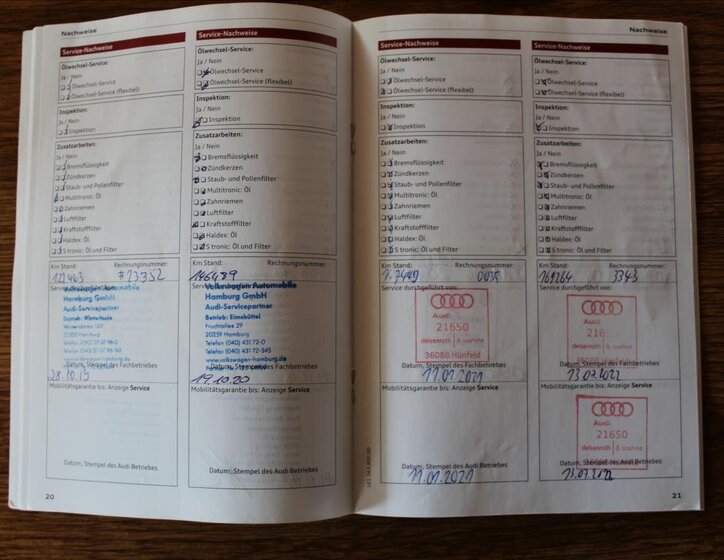 Nachweise
Service-Nachweise
Ölwechsel-Service:
Ja / Nein
Ölwechsel-Service
Ölwechsel-Service (flexibel)
Inspektion:
Ja / Nein
Inspektion
Zusatzarbeiten:
Ja / Nein
Bremsflüssigkeit
Zündkerzen
Staub- und Pollenfilter
Multitronic: Öl
Zahnriemen
Luftfilter
Kraftstofffilter
Haldex: Öl
S tronic: Öl und Filter
Km Stand: Rechnungsnummer:
122463 #23352
Service durchgeführt von:
Volkswagen Automobile
Hamburg GmbH
Audi-Servicepartner
Betrieb: Winterhude
22309 Hamburg
Datum, Stempel des Fachbetriebes
28.10.19
Mobilitätsgarantie bis: Anzeige Service
Datum, Stempel des Audi Betriebes
20
Service-Nachweise
Ölwechsel-Service:
Ja / Nein
Ölwechsel-Service
Ölwechsel-Service (flexibel)
Inspektion:
Ja / Nein
Inspektion
Zusatzarbeiten:
Ja / Nein
Bremsflüssigkeit
Zündkerzen
Staub- und Pollenfilter
Multitronic: Öl
Zahnriemen
Luftfilter
Kraftstofffilter
Haldex: Öl
S tronic: Öl und Filter
Km Stand: Rechnungsnummer:
146489
Service
Volkswagen Automobile
Hamburg GmbH
Audi-Servicepartner
Betrieb: Eimsbüttel
Fruchtallee 29
20259 Hamburg
Telefon (040) 431 72-0
Telefax (040) 431 72-345
www.volkswagen-hamburg.de
Datum, Stempel des Fachbetriebes
19.10.20
Mobilitätsgarantie bis: Anzeige Service
Datum, Stempel des Audi Betriebes
Service-Nachweise
Ölwechsel-Service:
Ja / Nein
Ölwechsel-Service
Ölwechsel-Service (flexibel)
Inspektion:
Ja / Nein
Inspektion
Zusatzarbeiten:
Ja / Nein
Bremsflüssigkeit
Zündkerzen
Staub- und Pollenfilter
Multitronic: Öl
Zahnriemen
Luftfilter
Kraftstofffilter
Haldex: Öl
S tronic: Öl und Filter
Km Stand: Rechnungsnummer:
Service durchgeführt von:
Audi
21650
deisenroth & soehne
36088 Hünfeld
Datum, Stempel des Fachbetriebes
11.01.2021
Mobilitätsgarantie bis: Anzeige Service
Datum, Stempel des Audi Betriebes
11.01.2021
Nachweise
Service-Nachweise
Ölwechsel-Service:
Ja / Nein
Ölwechsel-Service
Ölwechsel-Service (flexibel)
Inspektion:
Ja / Nein
Inspektion
Zusatzarbeiten:
Ja / Nein
Bremsflüssigkeit
Zündkerzen
Staub- und Pollenfilter
Multitronic: Öl
Zahnriemen
Luftfilter
Kraftstofffilter
Haldex: Öl
S tronic: Öl und Filter
Km Stand: Rechnungsnummer:
169264 3343
Service durchgeführt von:
Audi
216
deisenroth & soehne
Datum, Stempel des Fachbetriebes
13.07.2022
Mobilitätsgarantie bis: Anzeige Service
Audi
21650
deisenroth & soehne
Datum, Stempel des Audi Betriebes
13.07.2022
21